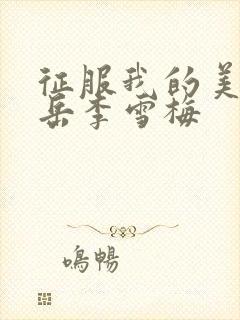 征服我的美
岳李雪梅
鳴暢